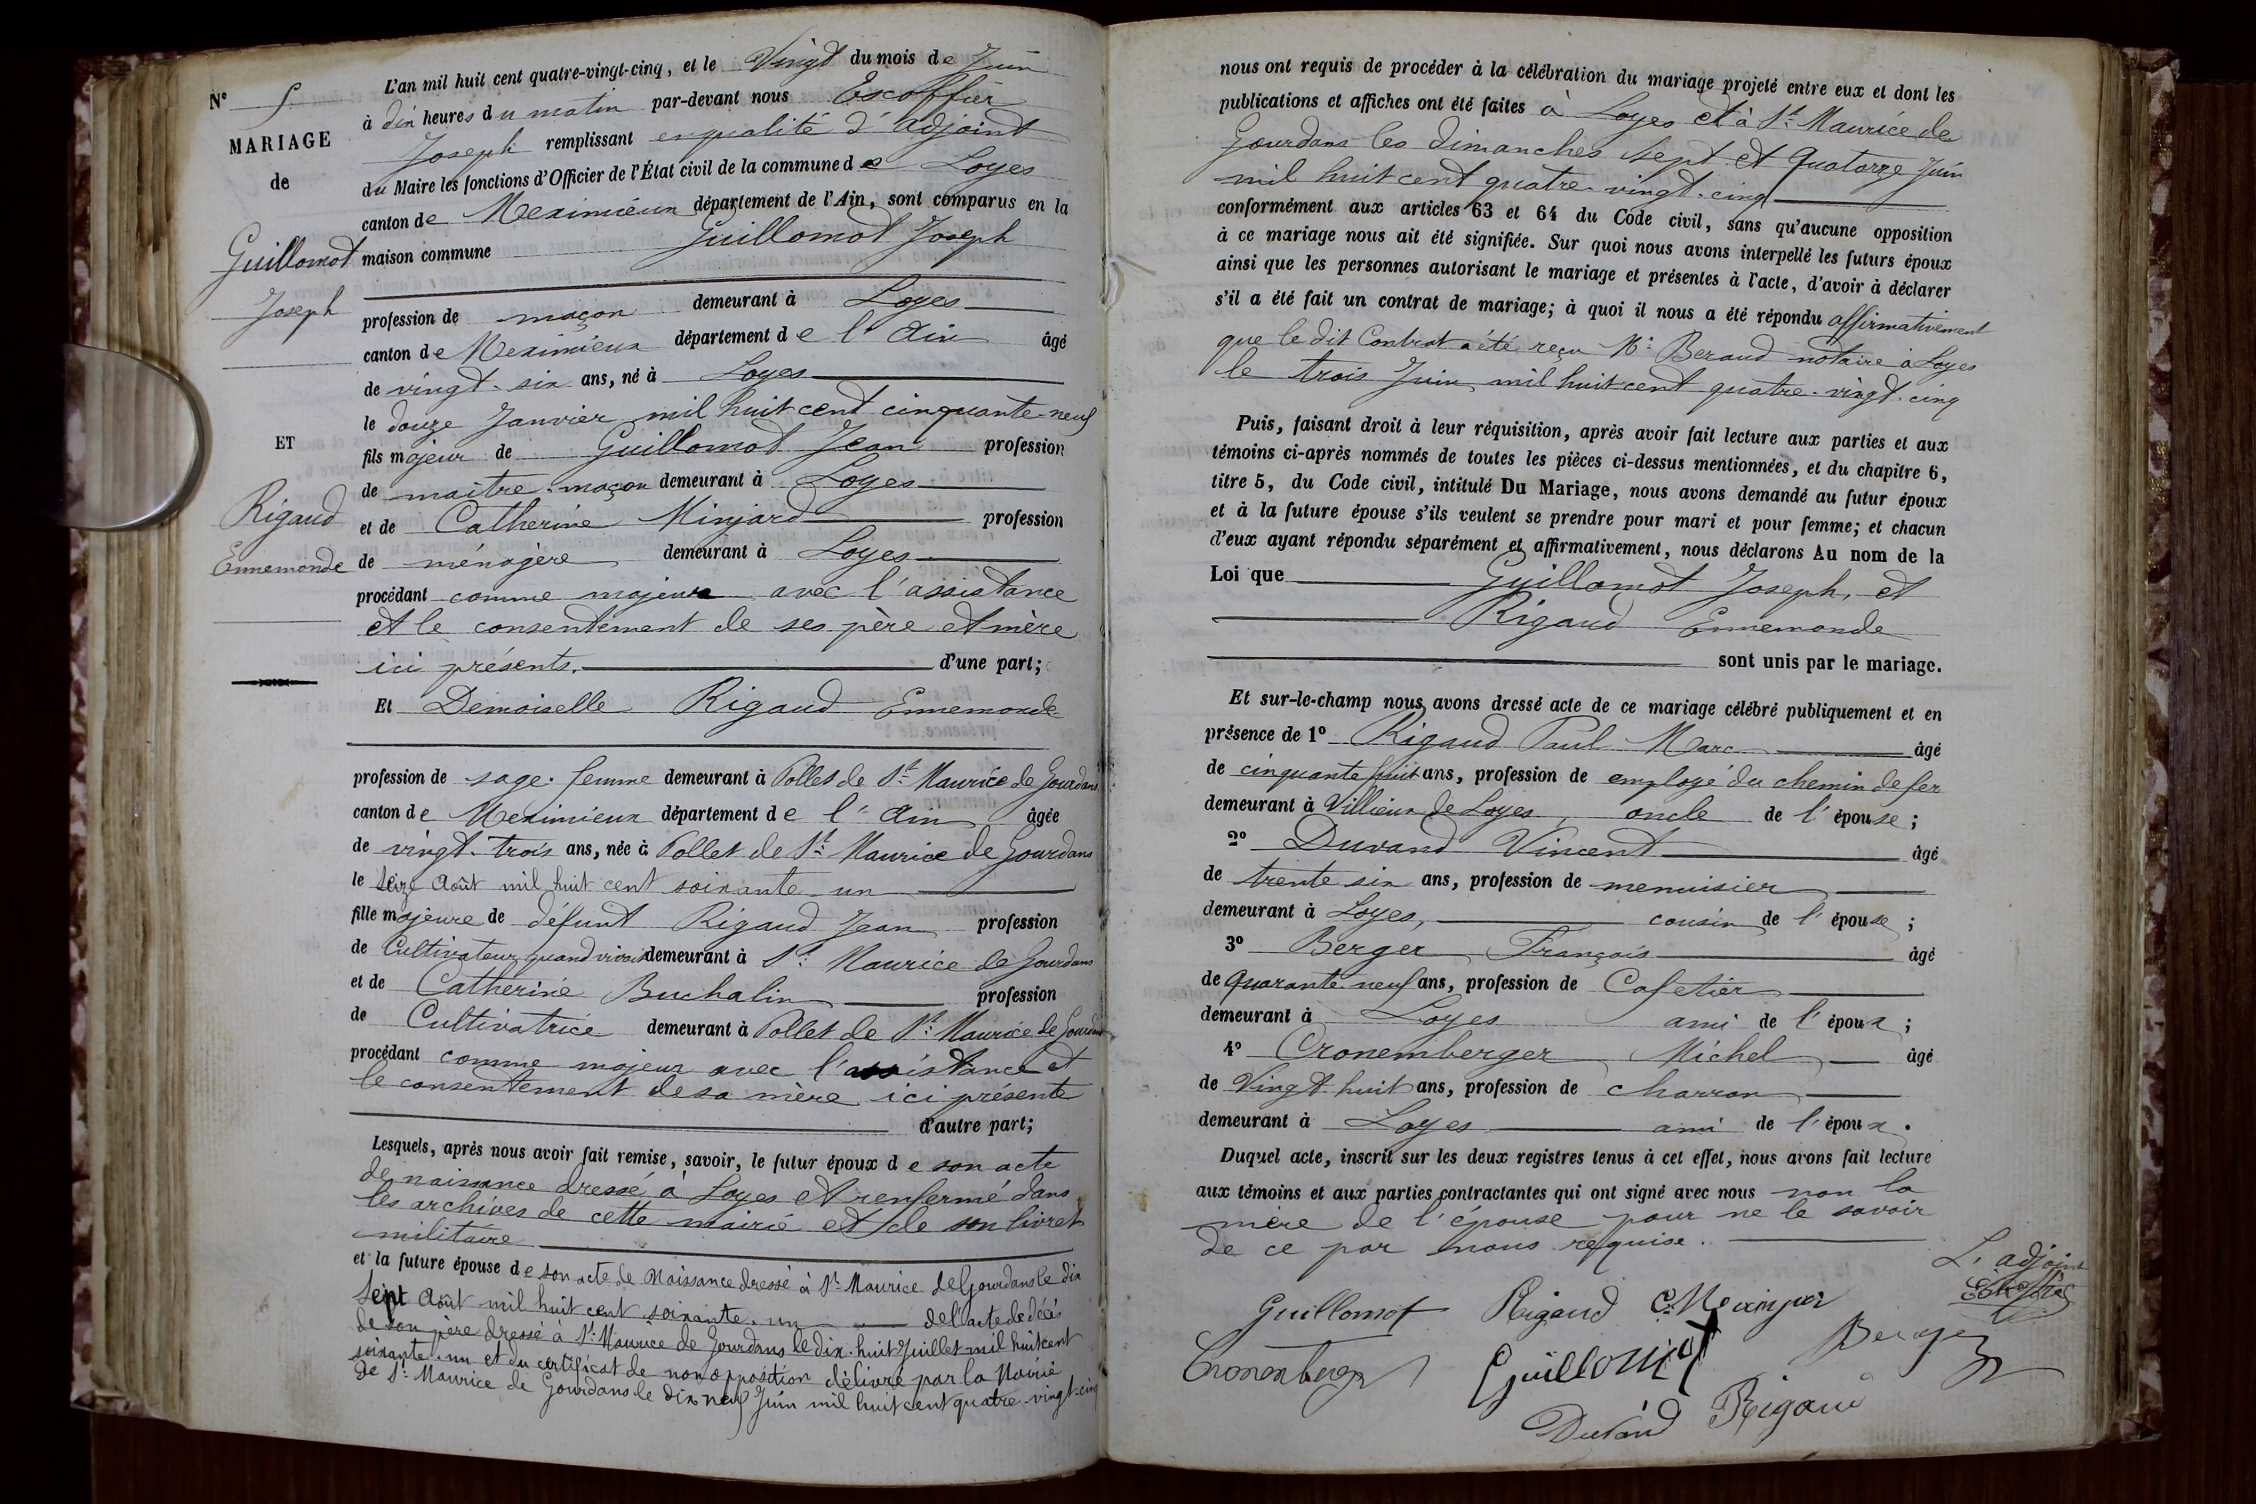 N° 5
MARIAGE
de
Guillomot
Joseph
ET
Rigaud
Ennemonde
L'an mil huit cent quatre-vingt-cinq, et le Vingt du mois de Juin
à dix heures du matin par-devant nous Escoffier
Joseph remplissant en qualité d'adjoint
du Maire les fonctions d'Officier de l'État civil de la commune de Loyes
canton de Meximieux département de l'Ain, sont comparus en la
maison commune Guillomot Joseph
profession de maçon demeurant à Loyes
canton de Meximieux département de l'Ain âgé
de vingt-six ans, né à Loyes
le douze Janvier mil huit cent cinquante-neuf
fils majeur de Guillomot Jean profession
de maître-maçon demeurant à Loyes
et de Catherine Minjard profession
de ménagère demeurant à Loyes
procédant comme majeur avec l'assistance
et le consentement de ses père et mère
ici présents. d'une part;
Et Demoiselle Rigaud Ennemonde
profession de sage-femme demeurant à Pollet de St Maurice de Gourdans
canton de Meximieux département de l'Ain âgée
de vingt-trois ans, née à Pollet de St Maurice de Gourdans
le seize Août mil huit cent soixante un
fille majeure de défunt Rigaud Jean profession
de Cultivateur quand vivait demeurant à St Maurice de Gourdans
et de Catherine Buchalin profession
de Cultivatrice demeurant à Pollet de St Maurice de Gourdans
procédant comme majeur avec l'assistance et
le consentement de sa mère ici présente
d'autre part;
Lesquels, après nous avoir fait remise, savoir, le futur époux de son acte
de naissance dressé à Loyes et renfermé dans
les archives de cette mairie et de son livret
militaire
et la future épouse de son acte de Naissance dressé à St Maurice de Gourdans le dix
sept Août mil huit cent soixante-un de l'acte de décès
de son père dressé à St Maurice de Gourdans le dix-huit Juillet mil huit cent
soixante-un et du certificat de non opposition délivré par la Mairie
de St Maurice de Gourdans le dix neuf Juin mil huit cent quatre-vingt-cinq
nous ont requis de procéder à la célébration du mariage projeté entre eux et dont les
publications et affiches ont été faites à Loyes et à St Maurice de
Gourdans les dimanches sept et quatorze Juin
mil huit cent quatre-vingt-cinq
conformément aux articles 63 et 64 du Code civil, sans qu'aucune opposition
à ce mariage nous ait été signifiée. Sur quoi nous avons interpellé les futurs époux
ainsi que les personnes autorisant le mariage et présentes à l'acte, d'avoir à déclarer
s'il a été fait un contrat de mariage; à quoi il nous a été répondu affirmativement
que le dit Contrat a été reçu Me Beraud notaire à Loyes
le trois Juin mil huit cent quatre-vingt-cinq
Puis, faisant droit à leur réquisition, après avoir fait lecture aux parties et aux
témoins ci-après nommés de toutes les pièces ci-dessus mentionnées, et du chapitre 6,
titre 5, du Code civil, intitulé Du Mariage, nous avons demandé au futur époux
et à la future épouse s'ils veulent se prendre pour mari et pour femme; et chacun
d'eux ayant répondu séparément et affirmativement, nous déclarons Au nom de la
Loi que Guillomot Joseph, et
Rigaud Ennemonde
sont unis par le mariage.
Et sur-le-champ nous avons dressé acte de ce mariage célébré publiquement et en
présence de 1° Rigaud Paul Marc âgé
de cinquante huit ans, profession de employé du chemin de fer
demeurant à Villieux de Loyes, oncle de l'épouse;
2° Durand Vincent âgé
de trente six ans, profession de menuisier
demeurant à Loyes, cousin de l'épouse;
3° Berger François âgé
de quarante-neuf ans, profession de Cafetier
demeurant à Loyes ami de l'époux;
4° Cronemberger Michel âgé
de Vingt huit ans, profession de charron
demeurant à Loyes ami de l'époux.
Duquel acte, inscrit sur les deux registres tenus à cet effet, nous avons fait lecture
aux témoins et aux parties contractantes qui ont signé avec nous non la
mère de l'épouse pour ne le savoir
de ce par nous requise.
L'adjoint
Escoffier
Guillomot Rigaud
Cronemberger Guillomot Berger
Durand Rigaud